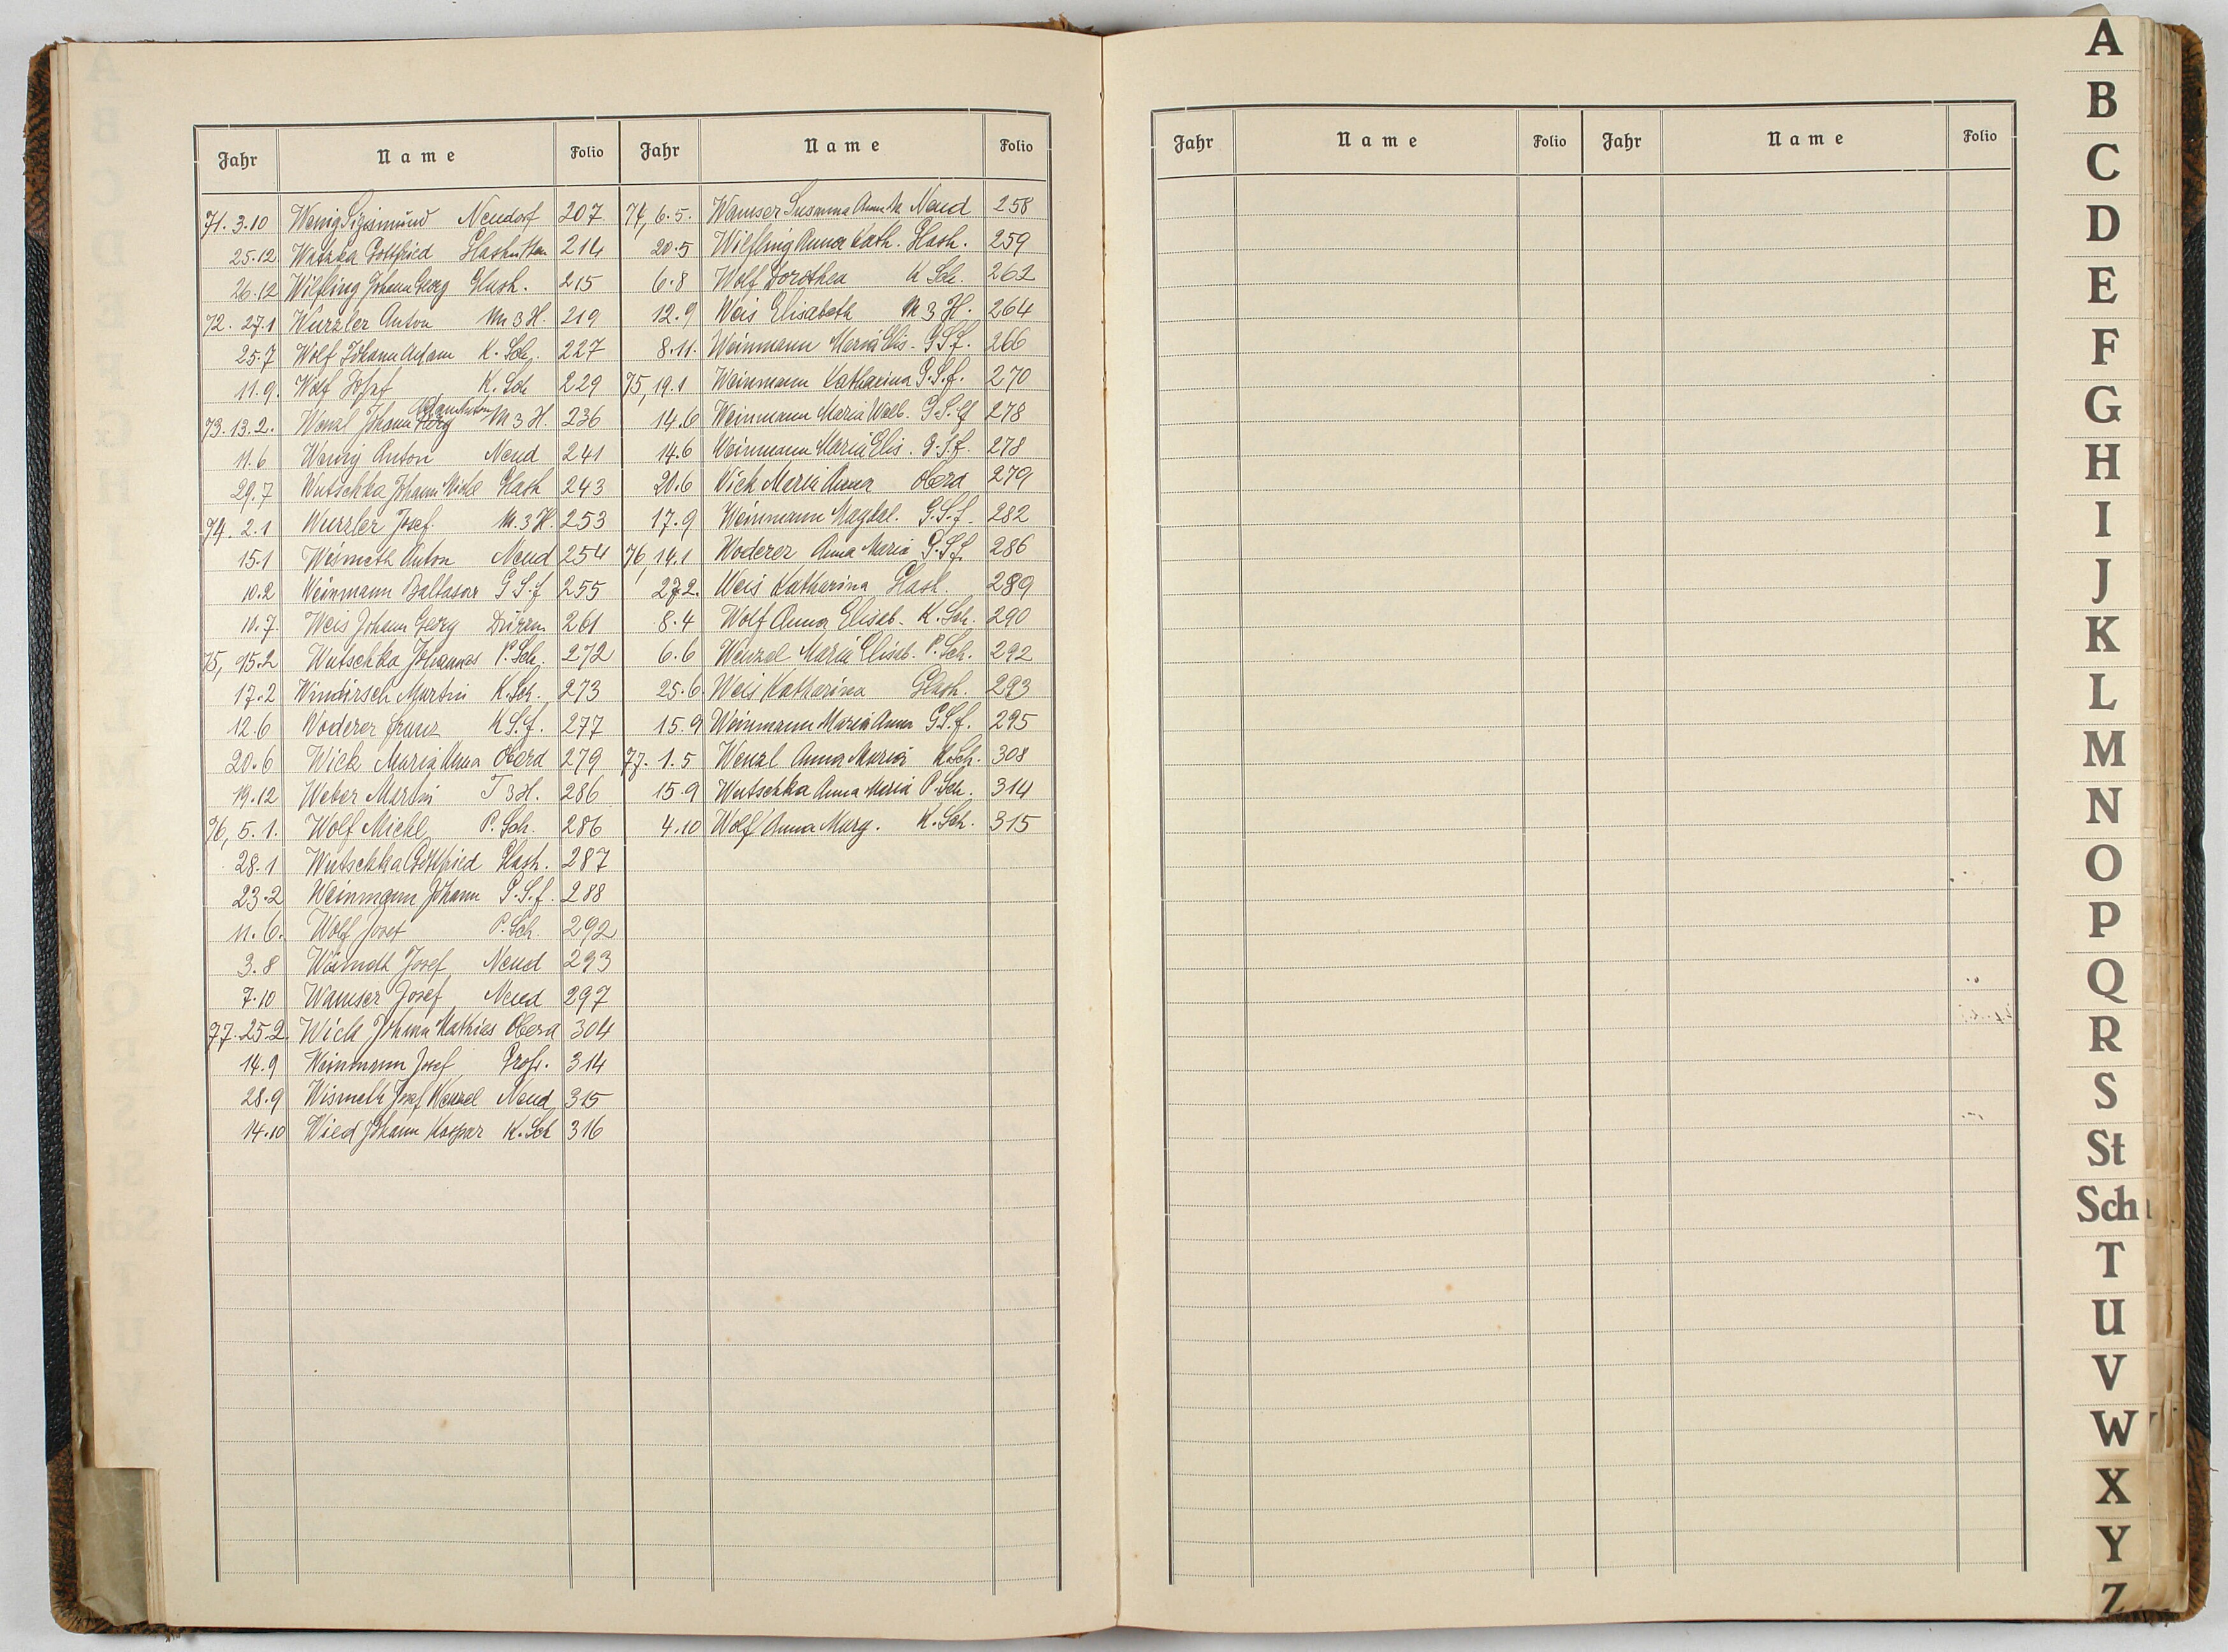 Jahr Name Folio Jahr Name Folio
71. 3.10 Wenig Sigismund Neudorf 207
25.12 Watzka Gottfried Glashütten 214
26.12 Wilfling Johann Georg Glash. 215
72. 27.1 Wurzler Anton M 3 H. 219
25.7 Wolf Johann Adam K. Sch. 227
11.9. Wolf Josef K. Sch 229
73. 13.2. Wenzl Johann Adam Anton M 3 H. 236
11.6 Wenig Anton Neud 241
29.7 Wutschka Johann Michl Glash 243
74. 2.1 Wurzler Josef. M. 3 H. 253
15.1 Weismeth Anton Neud 254
10.2 Weinmann Baltasar G S. f 255
10.7 Weis Johann Georg Dürrm 261
75, 15.2 Wutschka Johannes P. Sch. 272
17.2 Windirsch Martin K. Sch. 273
12.6 Woderer Franz K S. f. 277
20.6 Wick Maria Anna Oberd 279
19.12 Weber Martin T 3 H. 286
76, 5.1. Wolf Michl P. Sch. 286
28.1 Wutschka Gottfried Glash. 287
23.2 Weinmann Johann G. S. f. 288
11.6. Wolf Josef P. Sch. 292
3.8 Wismeth Josef Neud 293
7.10 Wamser Josef Neud 297
77. 25.2. Wick Johann Mathias Oberd 304
14.9 Weinmann Josef Grofs. 314
28.9 Wismeth Josef Wenzel Neud 315
14.10 Wied Johann Kaspar K. Sch 316
74, 6.5. Wamser Susanna Anna M. Neud 258
20.5 Wilfling Anna Kath. Glash. 259
6.8 Wolf Dorothea K Sch. 262
12.9 Weis Elisabeth M 3 H. 264
8.11. Weinmann Maria Elis. G S f. 266
75, 19.1 Weinmann Katharina G. S. f. 270
14.6 Weinmann Maria Walb. G. S. f 278
14.6 Weinmann Maria Elis. G. S f. 278
20.6 Wick Maria Anna Oberd 279
17.9 Weinmann Magdal. G. S. f. 282
76, 14.1 Woderer Anna Maria G. S f. 286
27.2. Weis Katharina Glash. 289
8.4 Wolf Anna Elisab. K. Sch. 290
6.6 Wenzel Maria Elisab. P. Sch. 292
25.6 Weis Katharina Glash. 293
15.9 Weinmann Maria Anna G S. f. 295
77. 1.5 Wenzl Anna Maria K. Sch. 308
15.9 Wutschka Anna Maria P. Sch. 314
4.10 Wolf Anna Marg. K. Sch. 315
Jahr Name Folio Jahr Name Folio
A
B
C
D
E
F
G
H
I
J
K
L
M
N
O
P
Q
R
S
St
Sch
T
U
V
W
X
Y
Z